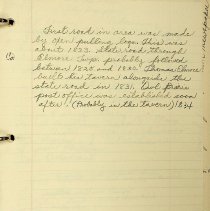 First road in area was made
by oxen pulling logs. This was
about 1823. State road through
Elmore Twps. probably followed
between 1820 and 1830. Thomas Elmore
built his tavern alongside the
state road in 1831.
post office was established soon
after. (Probably in the tavern) 1834